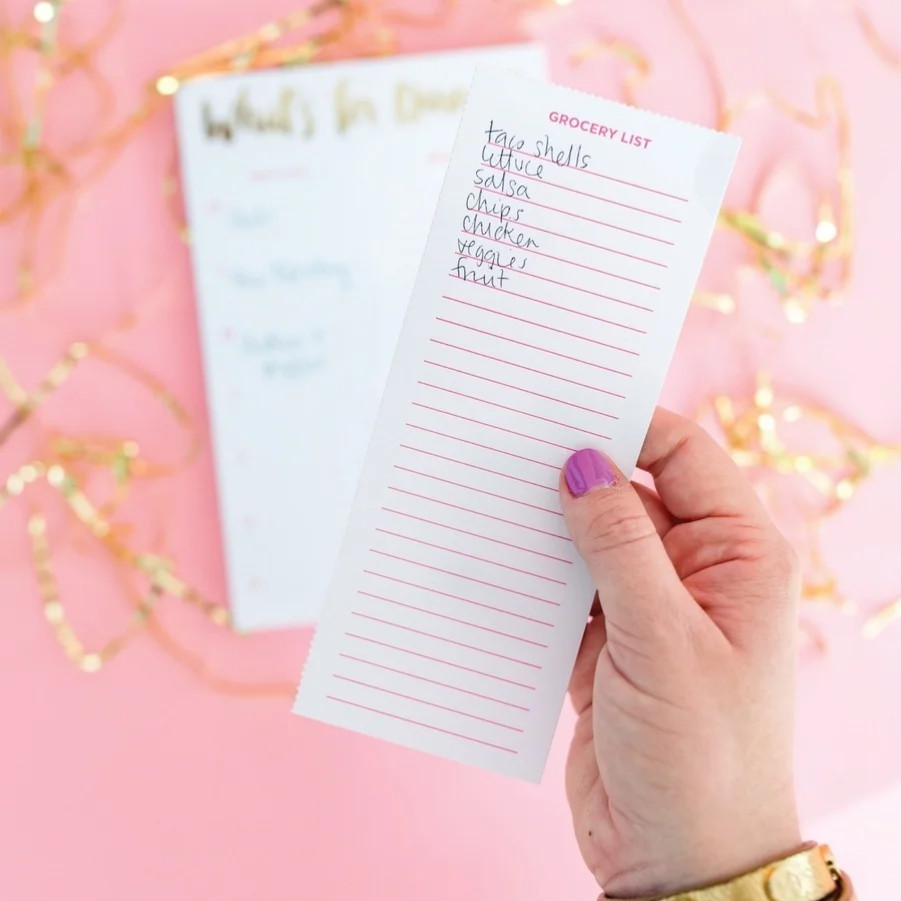 What's for Din
GROCERY LIST
taco shells
lettuce
salsa
chips
chicken
veggies
fruit